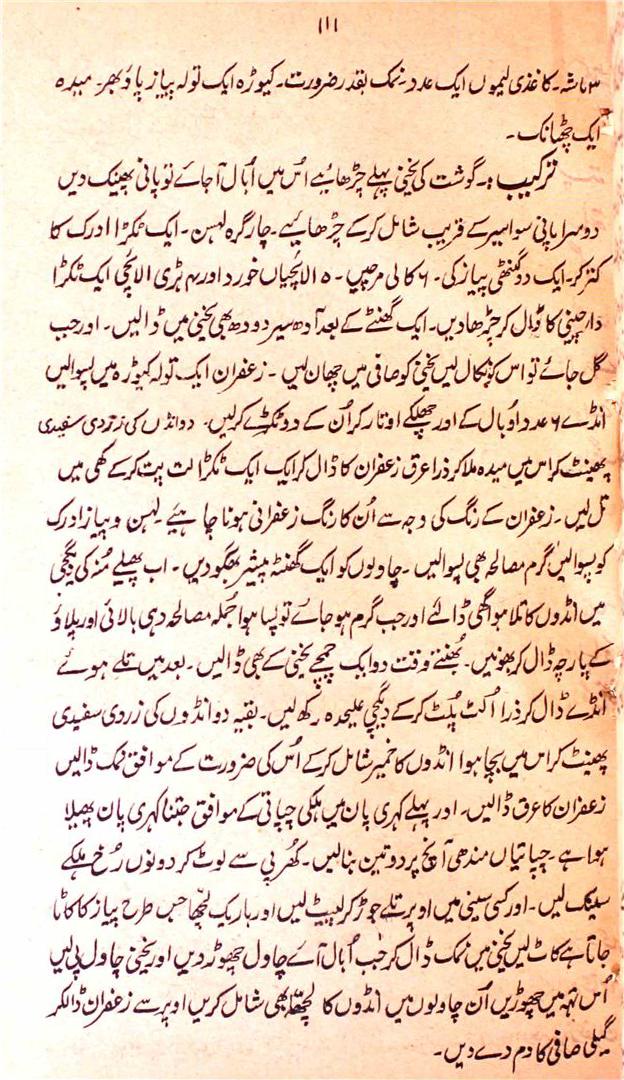 ۱۱۱
۳ ماشہ۔ کاغذی لیموں ایک عدد۔ نمک بقدر ضرورت۔ کیوڑہ ایک تولہ پیاز پاؤ بھر۔ میدہ
ایک چھٹانک۔
ترکیب :۔ گوشت کی یخنی پہلے چڑھائیے اس میں اُبال آجائے تو پانی پھینک دیں
دوسرا پانی سوا سیر کے قریب شامل کر کے چڑھائیے۔ چار گرہ لہسن۔ ایک ٹکڑا ادرک کا
کتر کر۔ ایک دو گنٹھی پیاز کی۔ ۶ کالی مرچیں۔ ۵ الائچیاں خورد اور بڑی الائچی ایک ٹکڑا
دارچینی کا ڈال کر چڑھا دیں۔ ایک گھنٹے کے بعد آدھ سیر دودھ بھی یخنی میں ڈالیں۔ اور جب
گل جائے تو اس کو نکال لیں یخنی کو صافی میں چھان لیں۔ زعفران ایک تولہ کیوڑہ میں پسوالیں
انڈے ۶ عدد اوبال کے اور چھلکے اوتار کر اُن کے دو ٹکڑے کر لیں۔ دو انڈوں کی زردی سفیدی
پھینٹ کر اس میں میدہ ملا کر ذرا عرق زعفران کا ڈال کر ایک ایک ٹکڑا لت پت کر کے گھی میں
تل لیں۔ زعفران کے رنگ کی وجہ سے اُن کا رنگ زعفرانی ہونا چاہیئے۔ لہسن و پیاز ادرک
کو پسوالیں گرم مصالحہ بھی پسوالیں۔ چاولوں کو ایک گھنٹہ پیشتر بھگو دیں۔ اب پھیلے منہ کی دیگچی
میں انڈوں کا تلا ہوا گھی ڈالئے اور جب گرم ہو جائے تو پسا ہوا جملہ مصالحہ دہی بالائی اور پلاؤ
کے پارچہ ڈال کر بھونیں۔ بُھنتے وقت دو ایک چمچے یخنی کے بھی ڈالیں۔ بعد میں تلے ہوئے
انڈے ڈال کر ذرا اُلٹ پُلٹ کر کے دیگچی علیحدہ رکھ لیں۔ بقیہ دو انڈوں کی زردی سفیدی
پھینٹ کر اس میں بچا ہوا انڈوں کا خمیر شامل کر کے اُس کی ضرورت کے موافق نمک ڈالیں
زعفران کا عرق ڈالیں۔ اور پہلے کہری پان میں ہلکی چپاتی کے موافق جتنا کہری پان پھیلا
ہوا ہے۔ چپاتیاں مندھی آنچ پر دو تین بنالیں۔ کُھرپی سے لوٹ کر دونوں رُخ ہلکے
سینک لیں۔ اور کسی سینی میں اوپر تلے جوڑ کر لپیٹ لیں اور باریک لچّھا جس طرح پیاز کا کاٹا
جاتا ہے کاٹ لیں یخنی میں نمک ڈال کر جب اُبال آئے چاول چھوڑ دیں اور یخنی چاول پی لیں
اُس تہہ میں چھوڑیں اُن چاولوں میں انڈوں کا لچھا بھی شامل کریں اوپر سے زعفران ڈالکر
گیلی صافی کا دم دے دیں۔